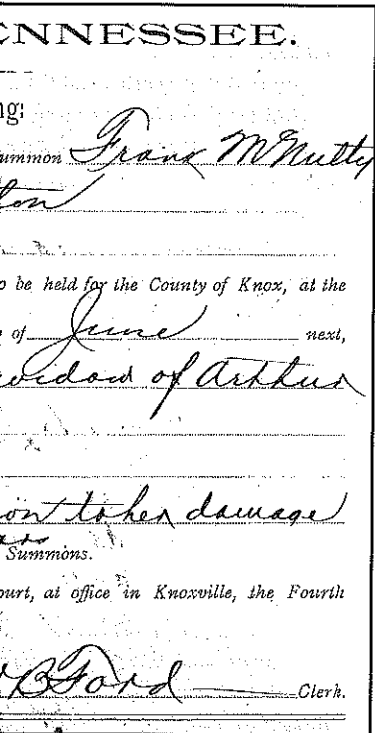 ENNESSEE.
ng:
ummon Frank McNutty
ton
o be held for the County of Knox, at the
of June next,
widow of Arthur
on to her damage
Summons.
ourt, at office in Knoxville, the Fourth
B Ford Clerk.